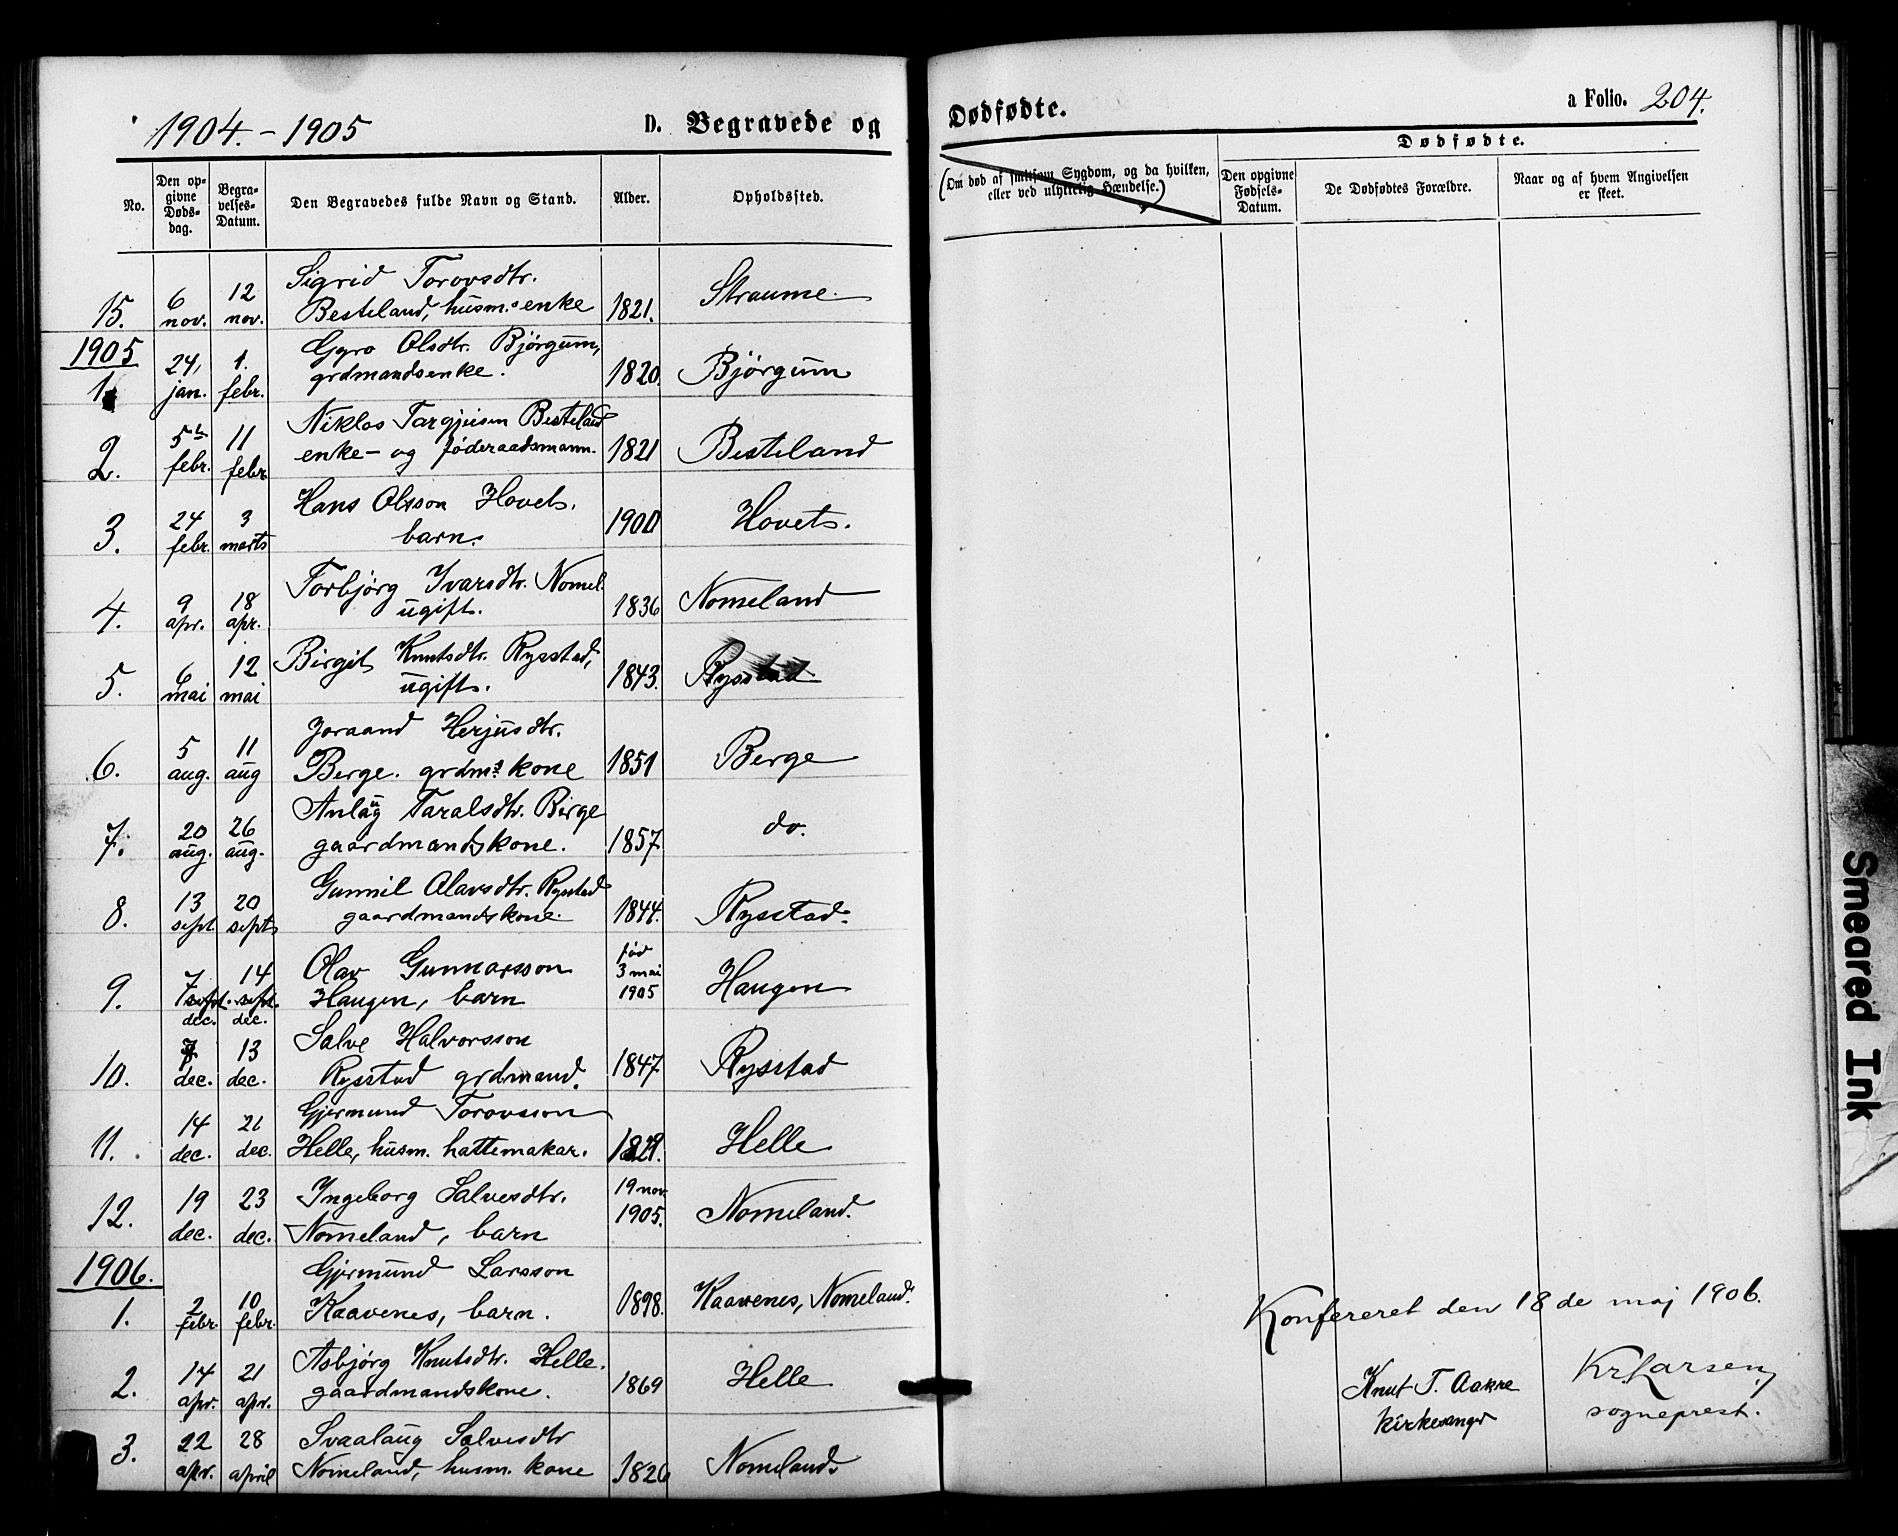 1904.-1905
D. Begravede og
Dødfødte.
a Folio. 204.
No.
Den opgivne Dødsdag.
Begravelses-Datum.
Den Begravedes fulde Navn og Stand.
Alder.
Opholdssted.
(Om død af smitsom Sygdom, og da hvilken, eller ved ulykkelig Hændelse.)
Dødfødte.
Den opgivne Fødsels-Datum.
De Dødfødtes Forældre.
Naar og af hvem Angivelsen er skeet.
15. 6 nov. 12 nov. Sigrid Torovsdtr. Besteland, husm.s enke 1821. Straume.
1905
1. 24, jan. 1. febr. Gyro Olsdtr. Bjørgum, grdmandsenke. 1820. Bjørgum
2. 5te febr. 11 febr Niklos Targjeisen Besteland enke- og føderaadsmann. 1821 Besteland
3. 24 febr. 3 marts Hans Olsson Hovet. barn. 1900 Hovet.
4. 9 apr. 18 apr. Torbjørg Ivarsdtr. Nomel. ugift. 1836 Nomeland
5. 6 mai 12 mai Birgit Knutsdtr. Rysstad, ugift. 1843. Rysstad
6. 5 aug. 11 aug Joraand Herjusdtr. Berge. grdm.s kone 1851 Berge
7. 20 aug. 26 aug. Anlaug Taralsdtr. Berge gaardmandskone. 1857 do.
8. 13 sept 20 sept Gunnil Olavsdtr. Rysstad gaardmandskone. 1844. Rysstad.
9. 7 sept. dec. 14 sept. dec. Olav Gunnarsson Haugen, barn fød 3 mai 1905 Haugen
10. 7 dec. 13 dec. Salve Halvorsson Rysstad grdmand. 1847 Rysstad
11. 14 dec. 21 dec. Gjermund Torovsson Helle, husm. hattemakar. Helle
12. 19 dec. 23 dec. Ingeborg Salvesdtr. Nomeland, barn 19 nov. 1905. Nomeland.
1906.
1. 2 febr. 10 febr. Gjermund Larsson Kaavenes, barn. 1898. Kaavenes, Nomeland.
2. 14 apr. 21 apr. Asbjørg Knutsdtr. Helle. gaardmandskone. 1869 Helle
3. 22 apr. 28 april Svaalaug Salvesdtr Nomeland, husm. kone 1826 Nomeland
Konfereret den 18de maj 1906.
Knut T. Aakre
kirkesanger
Kr. Larsen,
sogneprest.
Smeared Ink